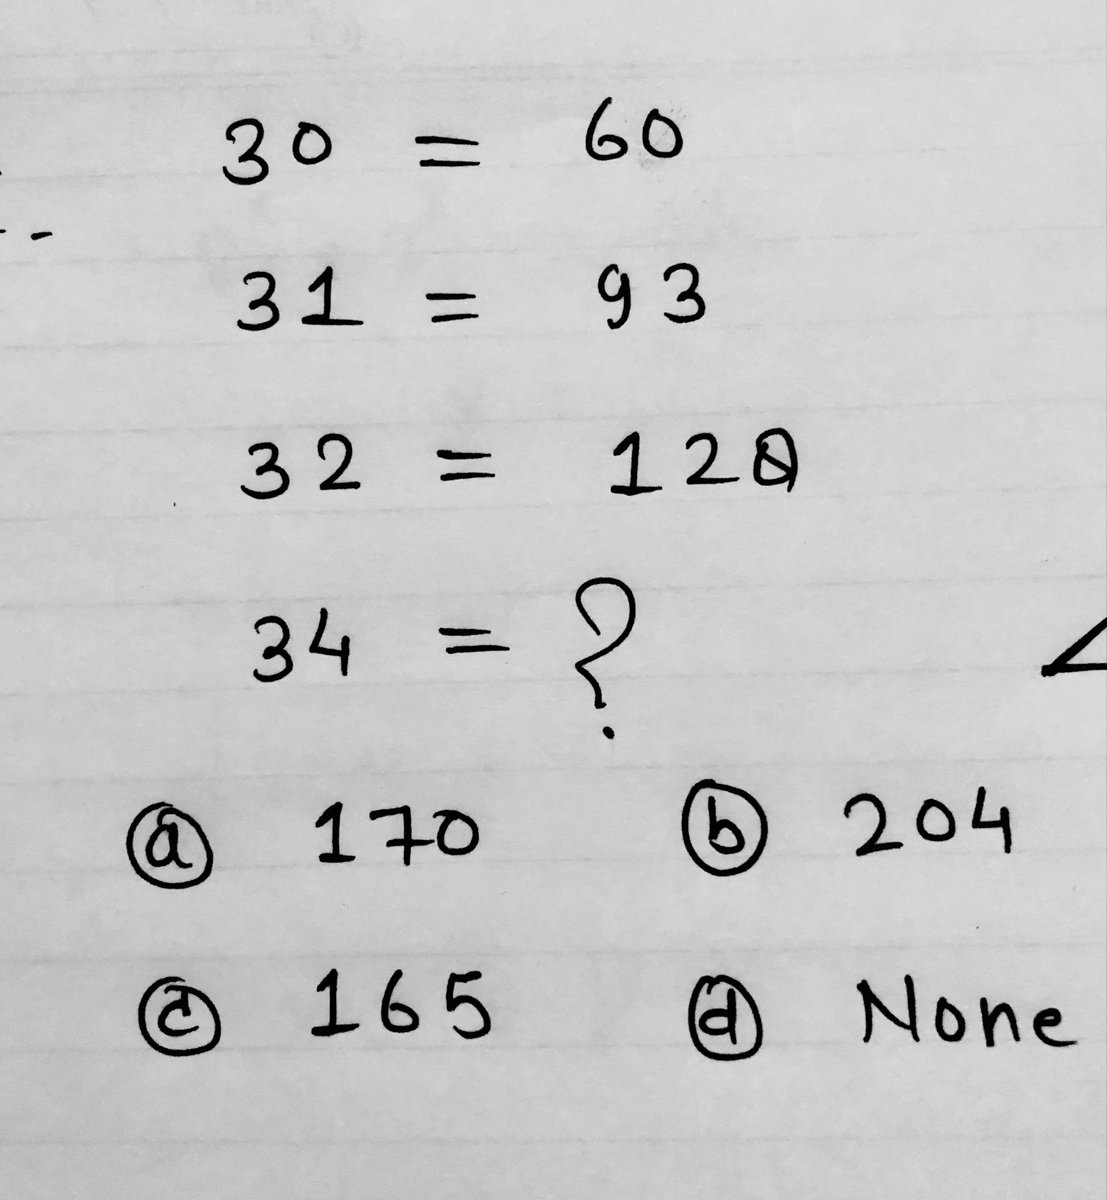 30 = 60
31 = 93
32 = 128
34 = ?
ⓐ 170 ⓑ 204
ⓒ 165 ⓓ None